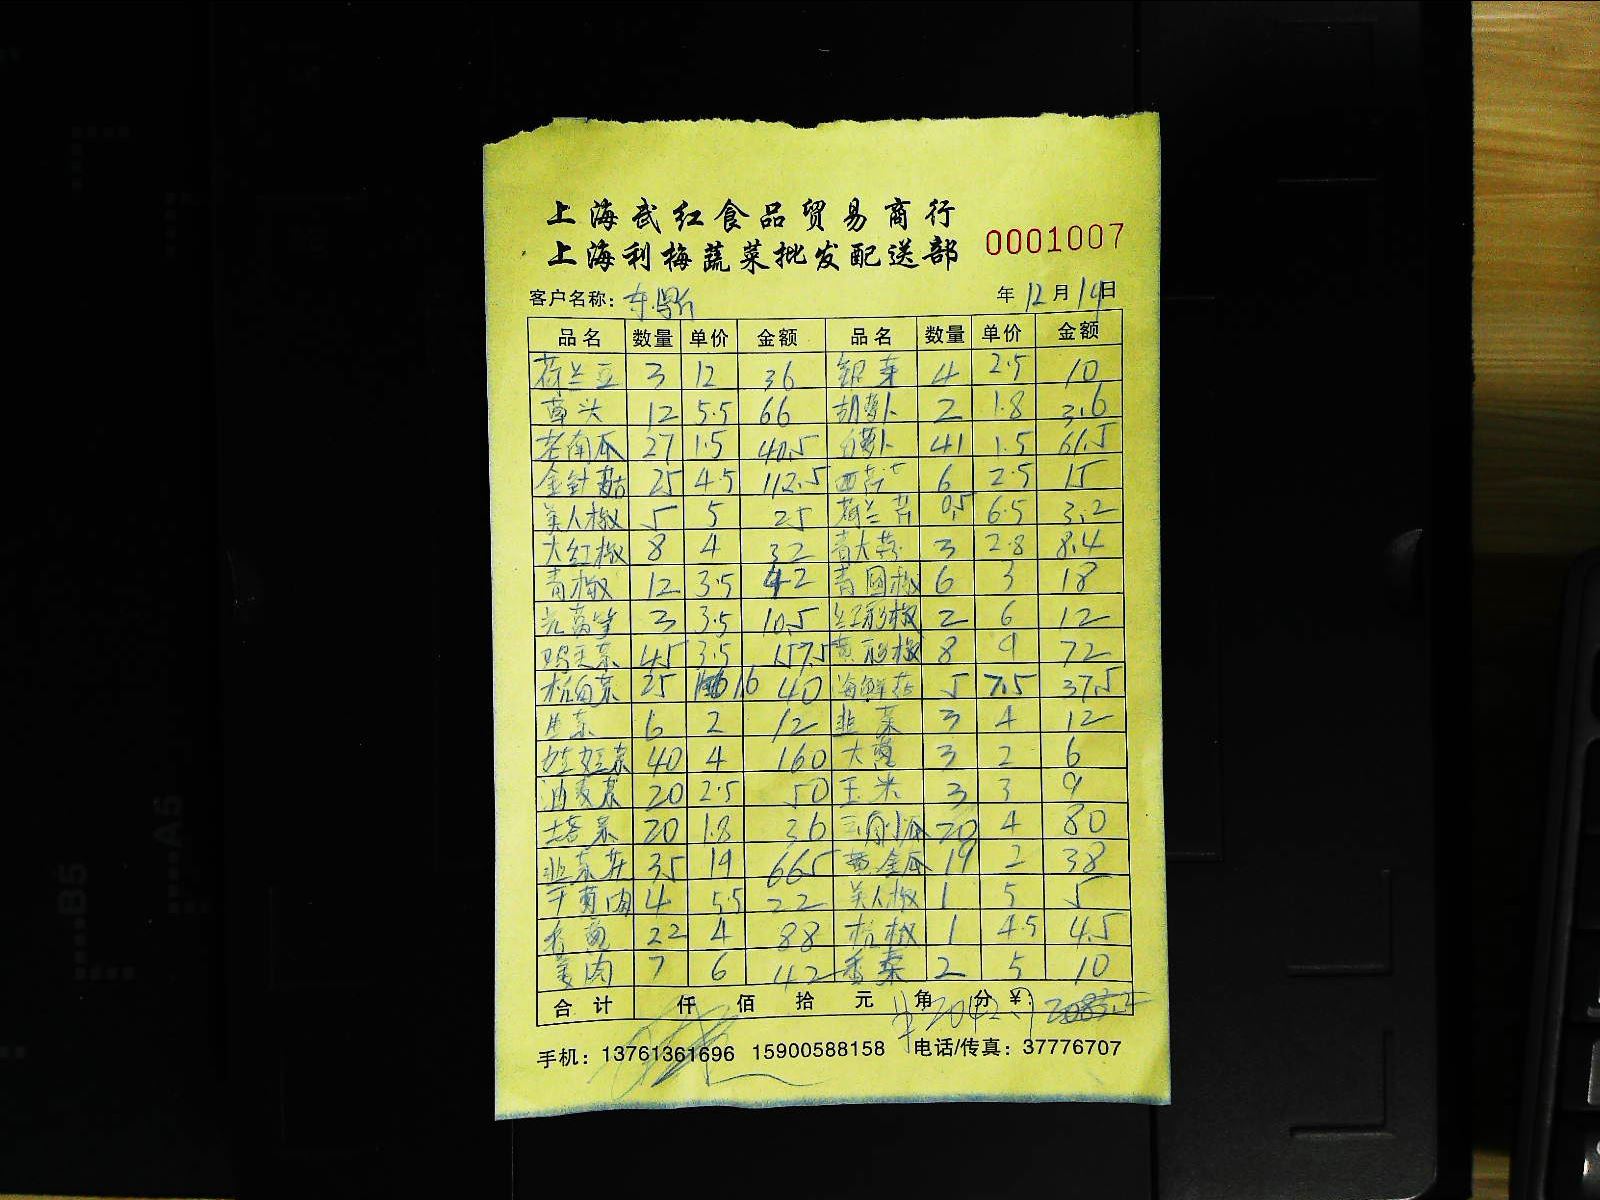 上海武红食品贸易商行
上海利梅蔬菜批发配送部 0001007
客户名称: 年12月14日
品名 数量 单价 金额 品名 数量 单价 金额
荷兰豆 3 12 36 银芽 4 2.5 10
草头 12 5.5 66 胡萝卜 2 1.8 3.6
老南瓜 27 1.5 40.5 白萝卜 41 1.5 61.5
金针菇 25 4.5 112.5 西芹 6 2.5 15
美人椒 5 5 25 荷兰芹 0.5 6.5 3.2
大红椒 8 4 32 青大蒜 3 2.8 8.4
青椒 12 3.5 42 青圆椒 6 3 18
光莴笋 3 3.5 10.5 红彩椒 2 6 12
鸡毛菜 45 3.5 157.5 黄彩椒 8 9 72
杭白菜 25 1.6 40 海鲜菇 5 7.5 37.5
生菜 6 2 12 韭菜 3 4 12
娃娃菜 40 4 160 大葱 3 2 6
油麦菜 20 2.5 50 玉米 3 3 9
塔菜 20 1.8 36 20 4 80
韭菜芽 35 19 665 黄金瓜 19 2 38
4 5.5 22 美人椒 1 5 5
香葱 22 4 88 杭椒 1 4.5 4.5
姜肉 7 6 42 香菜 2 5 10
合计 仟 佰 拾 元 角 分 ¥: 2042
手机: 13761361696 15900588158 电话/传真: 37776707